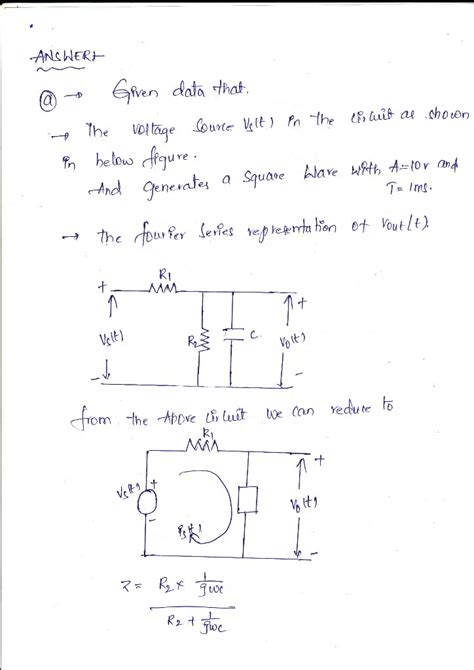 ANSWER:
(a) → Given data that.
→ The voltage source Vs(t) in the circuit as shown
in below figure.
And generates a square wave with A=10v and
T=1ms.
→ the fourier series representation of vout(t).
R1
+ +
Vs(t) R2 C. Vo(t)
- -
from the above circuit we can reduce to
R1
+
Vs(t) + Vo(t)
-
is(t)
-
Z = R2 × 1/jwc
R2 + 1/jwc